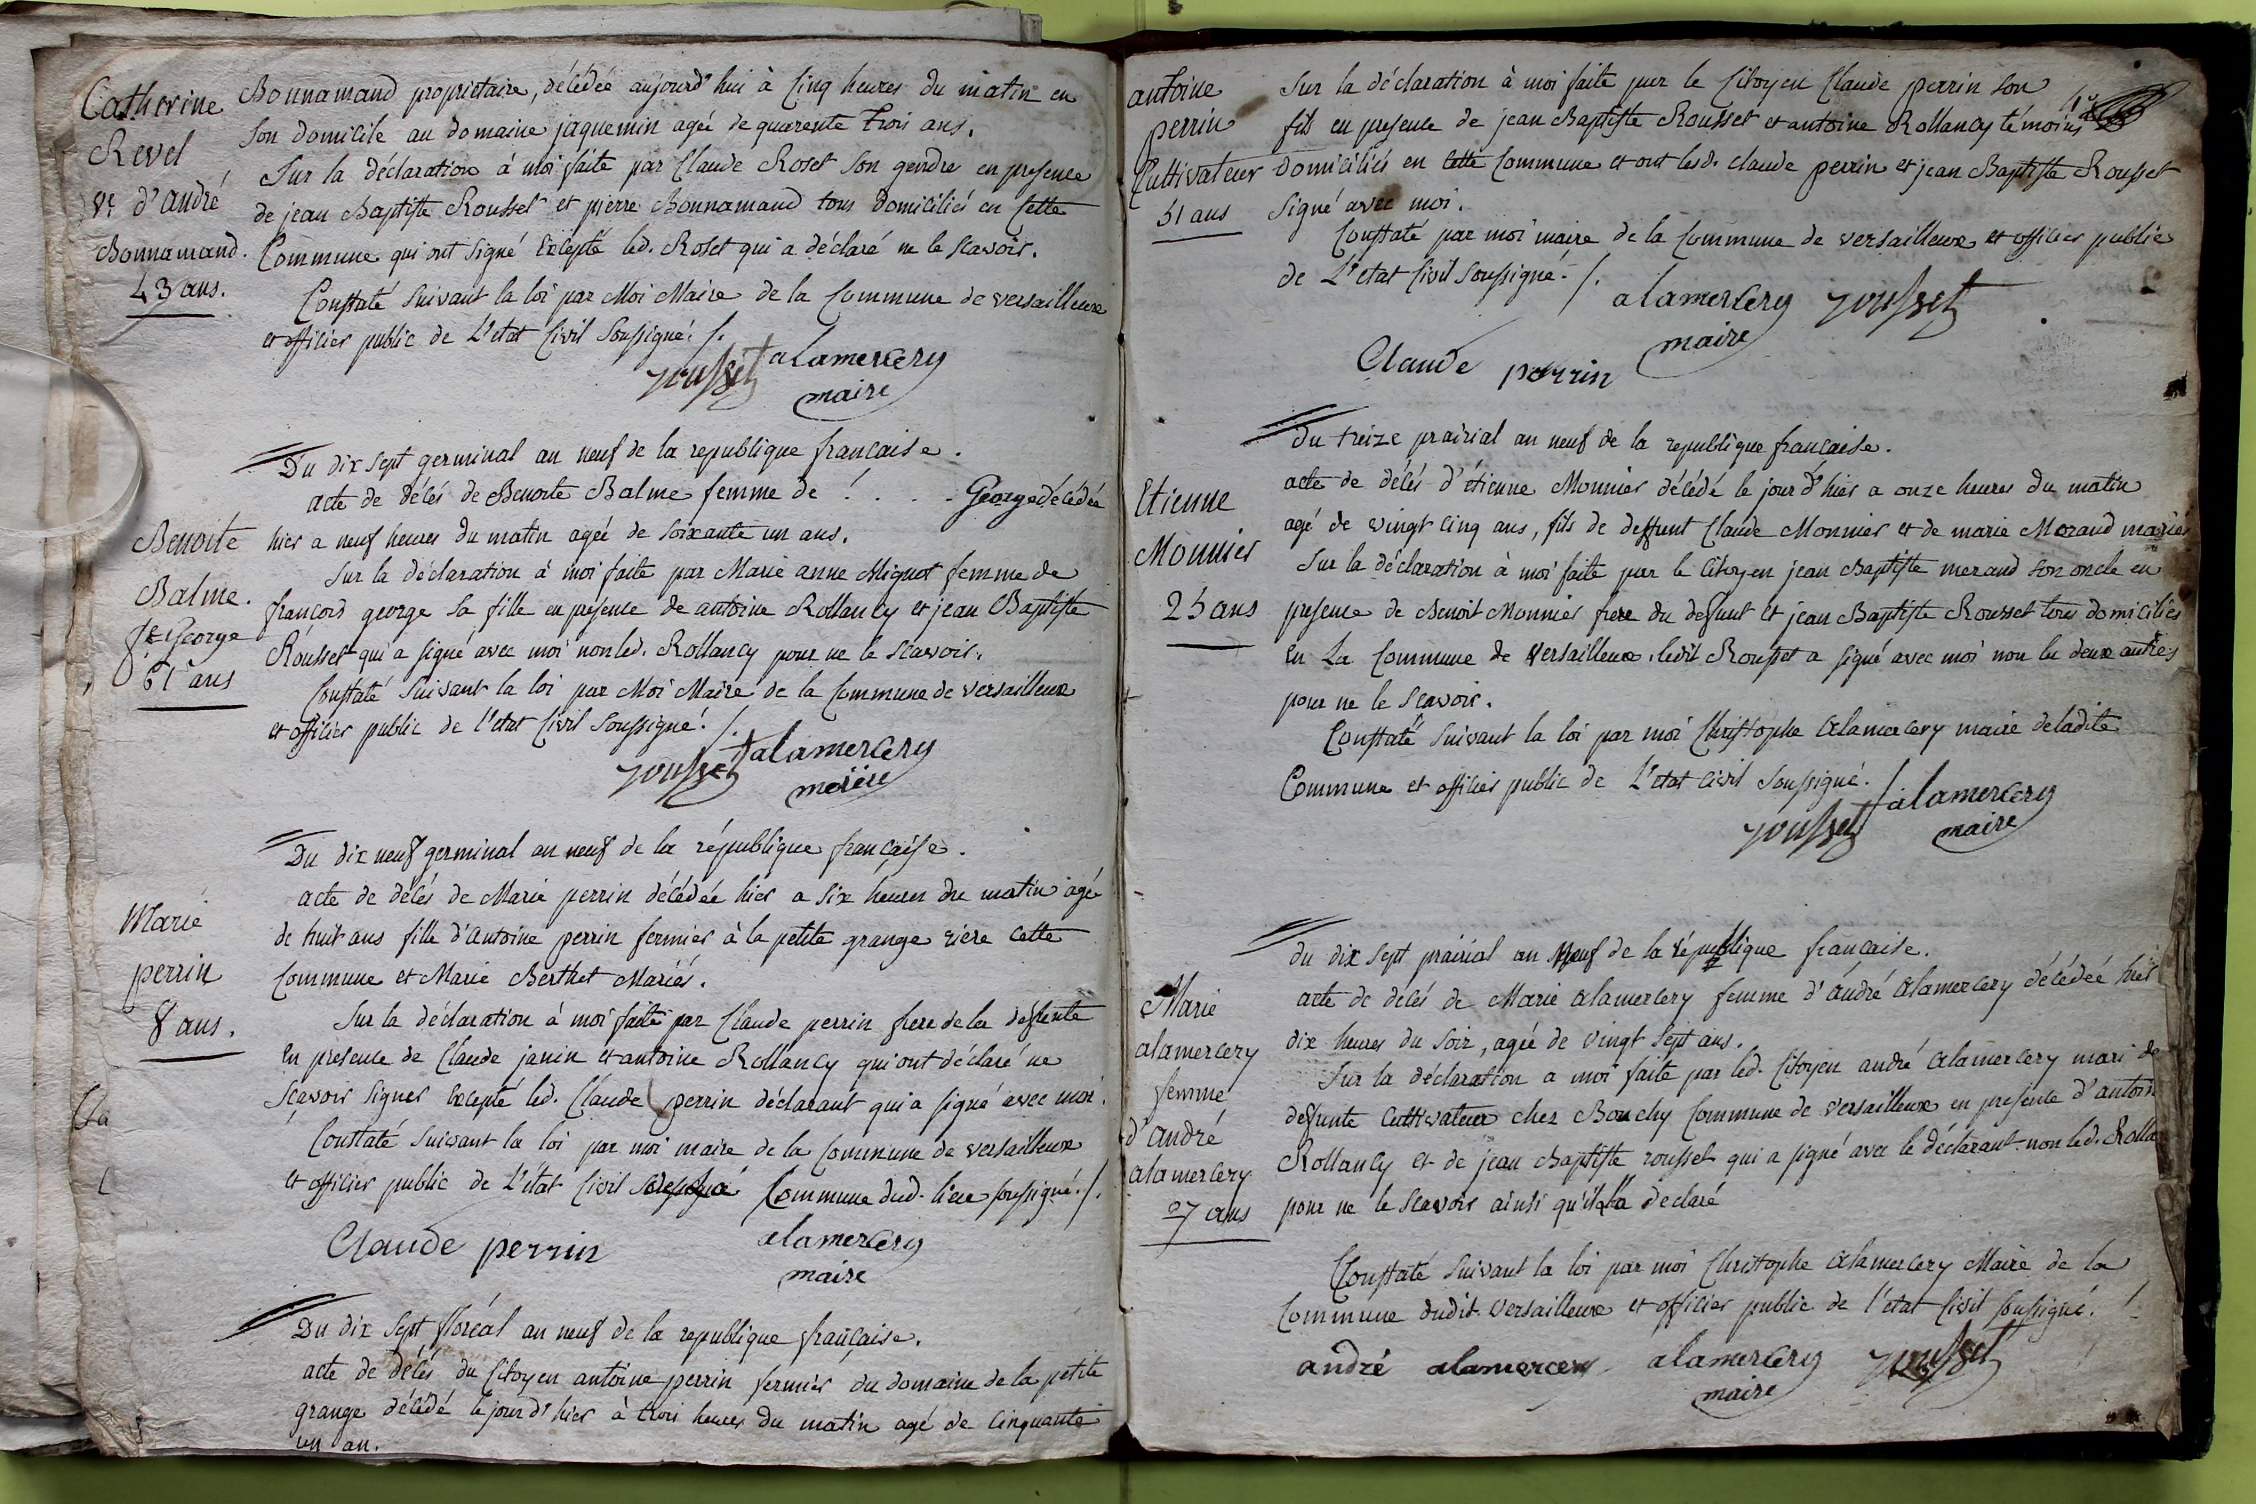 Catherine
Revel
Ve d'andré
Bonnamand.
43 ans.
Bonnamand proprietaire, décédée aujourd'hui à Cinq heures du matin en
son domicile au domaine jaquemin agée de quarente trois ans.
Sur la déclaration à moi faite par Claude Roset son gendre en presence
de jean Baptiste Rousset et pierre Bonnamand tous domiciliés en Cette
Commune qui ont signé Excepté led. Roset qui a déclaré ne le scavoir.
Constaté suivant la loi par Moi Maire de la Commune de versailleux
et officier public de L'etat Civil soussigné ./.
rousset alamercery
maire
Du dix sept germinal an neuf de la republique française.
Benoite
Balme.
fe George
61 ans
acte de décés de Benoite Balme femme de ! . . . - George décédée
hier a neuf heures du matin agée de soixante un ans.
Sur la déclaration à moi faite par Marie anne Mignot femme de
françois george sa fille en presence de antoine Rollancy et jean Baptiste
Rousset qui a signé avec moi non led. Rollancy pour ne le scavoir.
Constaté suivant la loi par Moi Maire de la Commune de versailleux
et officier public de l'etat Civil soussigné ! /.
rousset alamercery
maire
Du dix neuf germinal an neuf de la république française.
Marie
perrin
8 ans.
acte de décés de Marie perrin décédée hier a six heures du matin agé
de huit ans fille d'Antoine perrin fermier à la petite grange riere cette
Commune et Marie Berthet Mariés.
Sur la déclaration à moi faite par Claude perrin frere de la defunte
En presence de Claude janin et antoine Rollancy qui ont déclaré ne
Scavoir signer Excepté led. Claude perrin déclarant qui a signé avec moi.
Constaté suivant la loi par moi maire de la Commune de versailleux
et officier public de L'état Civil soussigné Commune dud. lieu soussigné ./.
Claude perrin alamercery
maire
Du dix sept floréal an neuf de la republique française.
acte de décés du Citoyen antoine perrin fermier du domaine de la petite
grange décédé le jour d'hier à trois heures du matin agé de Cinquante
un an.
antoine
perrin
Cultivateur
51 ans
Sur la déclaration à moi faite par le Citoyen Claude perrin son
fils en presence de jean Baptiste Rousset et antoine Rollancy témoins
domiciliés en cette Commune et ont lesd. claude perrin et jean Baptiste Rousset
signé avec moi.
Constaté par moi maire de la Commune de versailleux et officier public
de L'etat Civil soussigné ./.
alamercery rousset
maire
Claude perrin
Du treize prairial an neuf de la republique française.
Etienne
Monnier
25 ans
acte de décés d'étienne Monnier décédé le jour d'hier a onze heures du matin
agé de vingt cinq ans, fils de deffunt Claude Monnier et de marie Morand mariés
Sur la déclaration à moi faite par le Citoyen jean Baptiste merand son oncle en
presence de Benoit Monnier frere du defunt et jean Baptiste Rousset tous domiciliés
En La Commune de versailleux. ledit Rousset a signé avec moi non les deux autres
pour ne le Scavoir.
Constaté suivant la loi par moi Christophe Alamercery maire de ladite
Commune et officier public de L'etat Civil soussigné. /.
rousset alamercery
maire
du dix sept prairial an Neuf de la république française.
Marie
alamercery
femme
d'andré
alamercery
27 ans
acte de décés de Marie alamercery femme d'andré Alamercery décédée hier
dix heures du soir, agée de vingt sept ans.
Sur la déclaration a moi faite par led. Citoyen andré Alamercery mari de
defunte Cultivateur chez Bouchy Commune de versailleux en presence d'antoin
Rollancy et de jean baptiste rousset qui a signé avec le déclarant non led. Rolla
pour ne le scavoir ainsi qu'il l'a déclaré
Constaté suivant la loi par moi Christophe Alamercery Maire de la
Commune dudit versailleux et officier public de l'etat Civil soussigné. !
andré alamercery alamercery rousset
maire